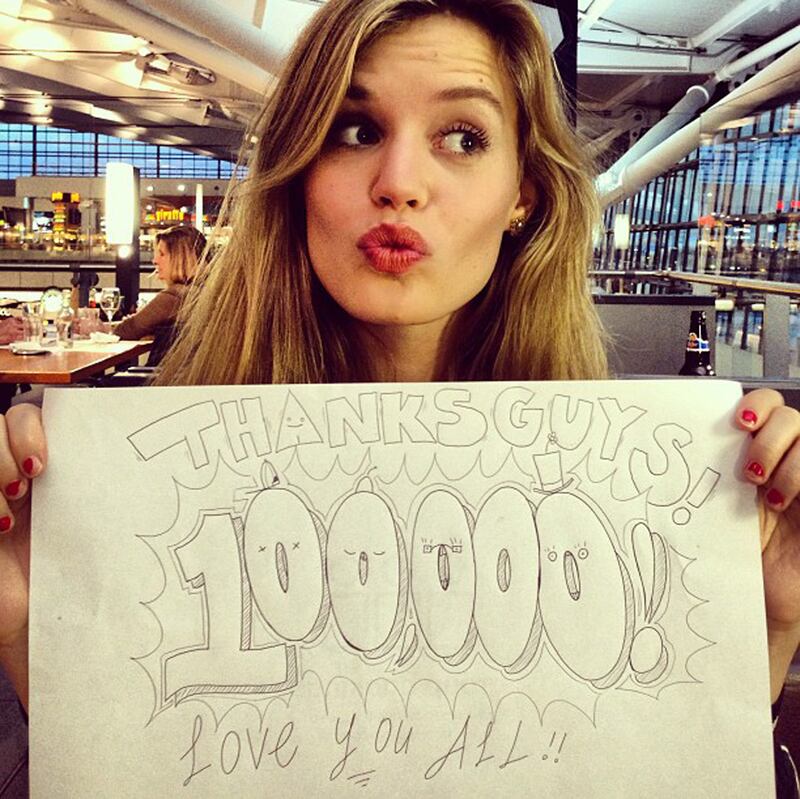 giraffe
THANKS GUYS!
100,000!
LOVE YOU ALL!!